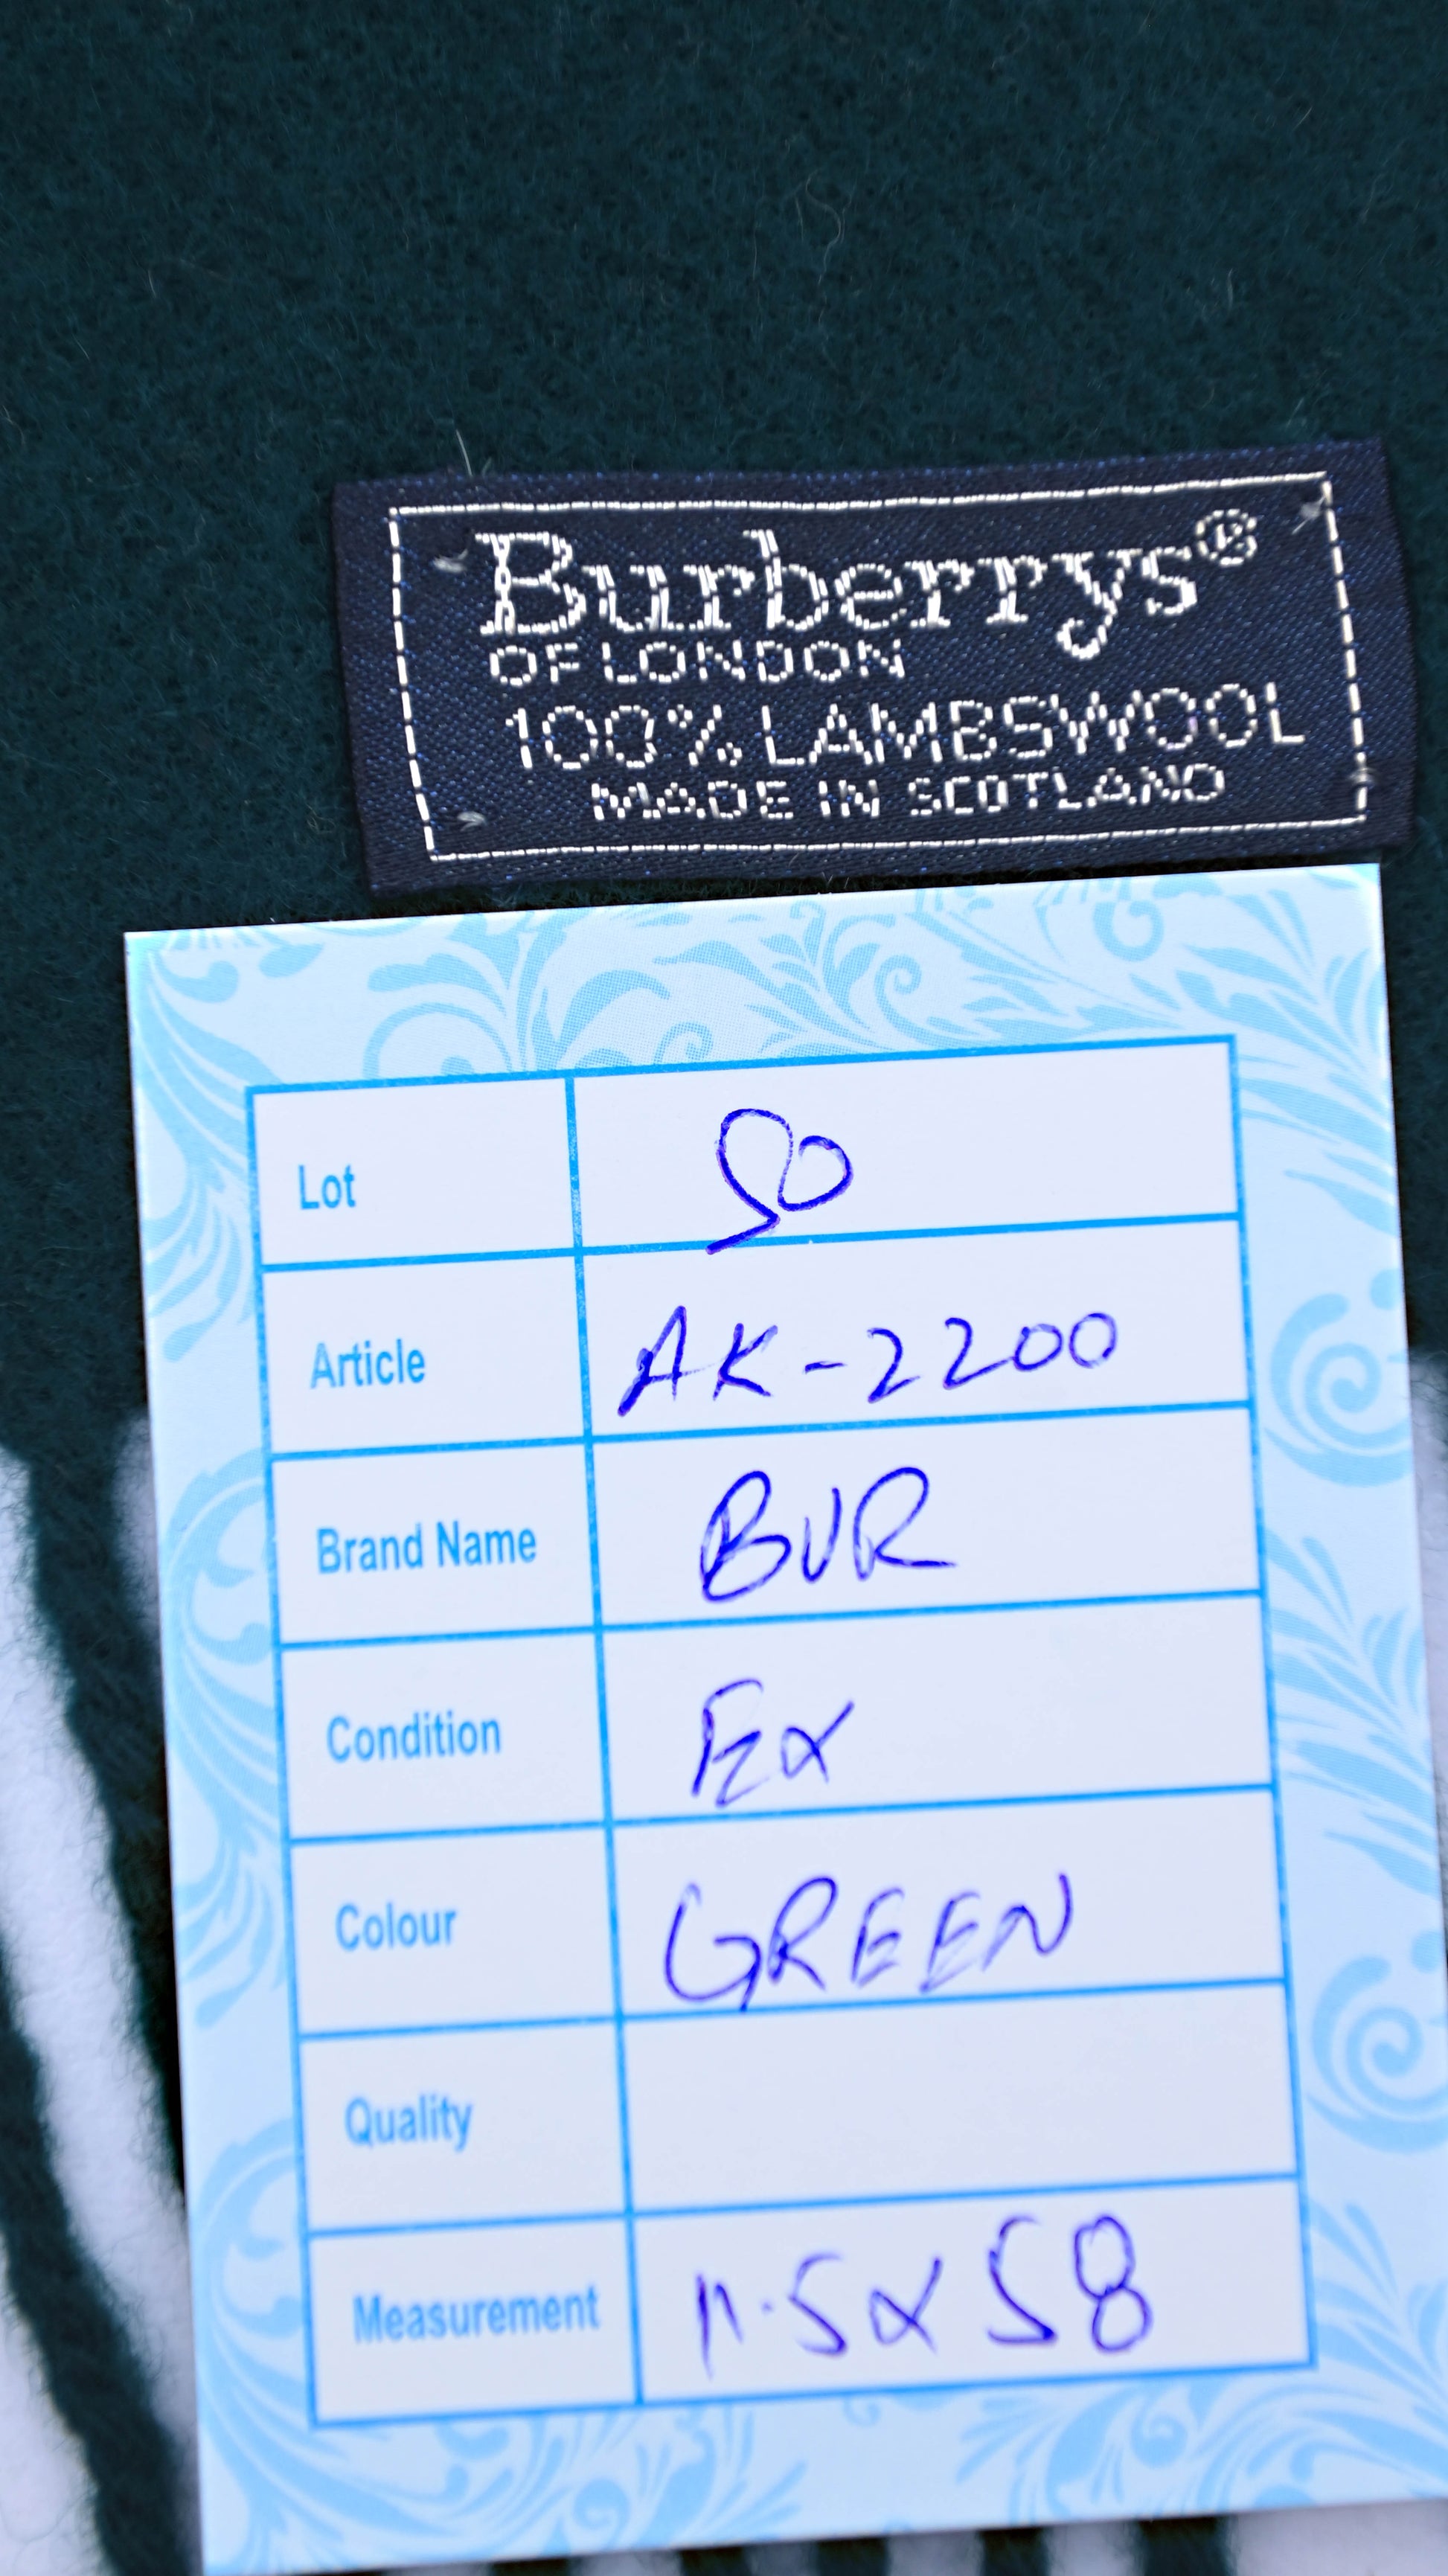 Burberrys®
OF LONDON
100% LAMBSWOOL
MADE IN SCOTLAND
Lot
Article AK-2200
Brand Name BUR
Condition EX
Colour GREEN
Quality
Measurement 11.5x58